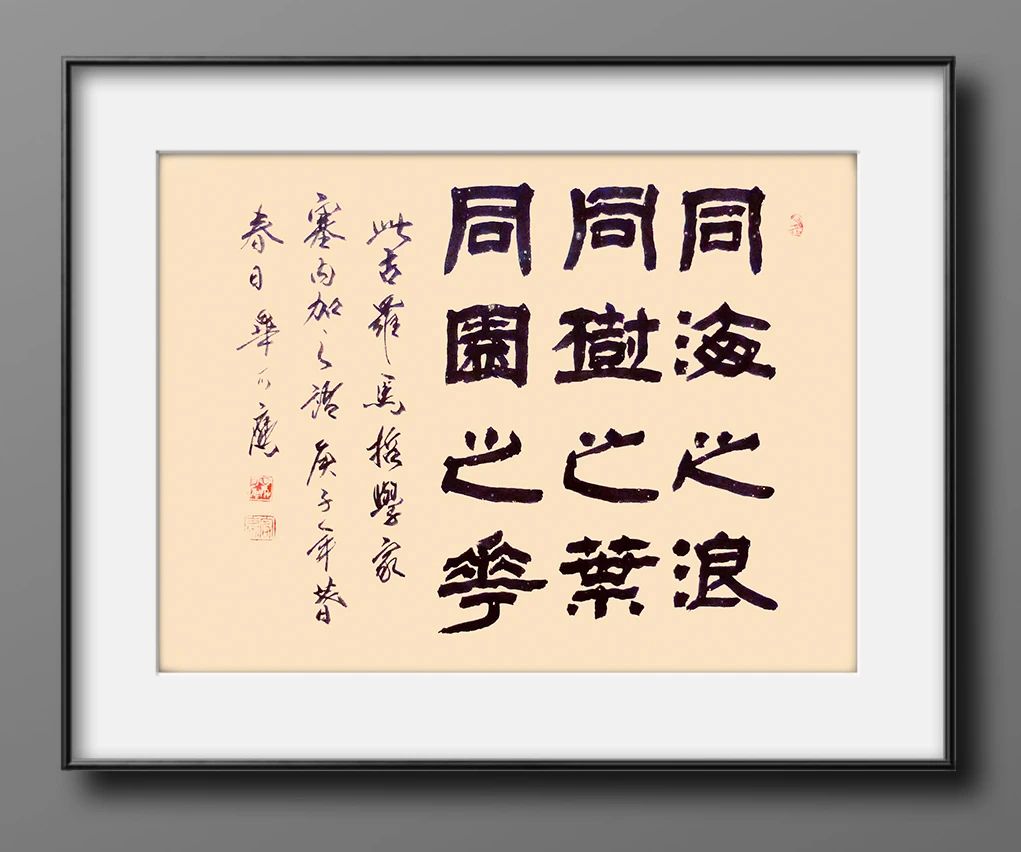 同海之浪
同樹之葉
同園之華
此古羅馬哲學家
塞内加之語庚子年暮
春日